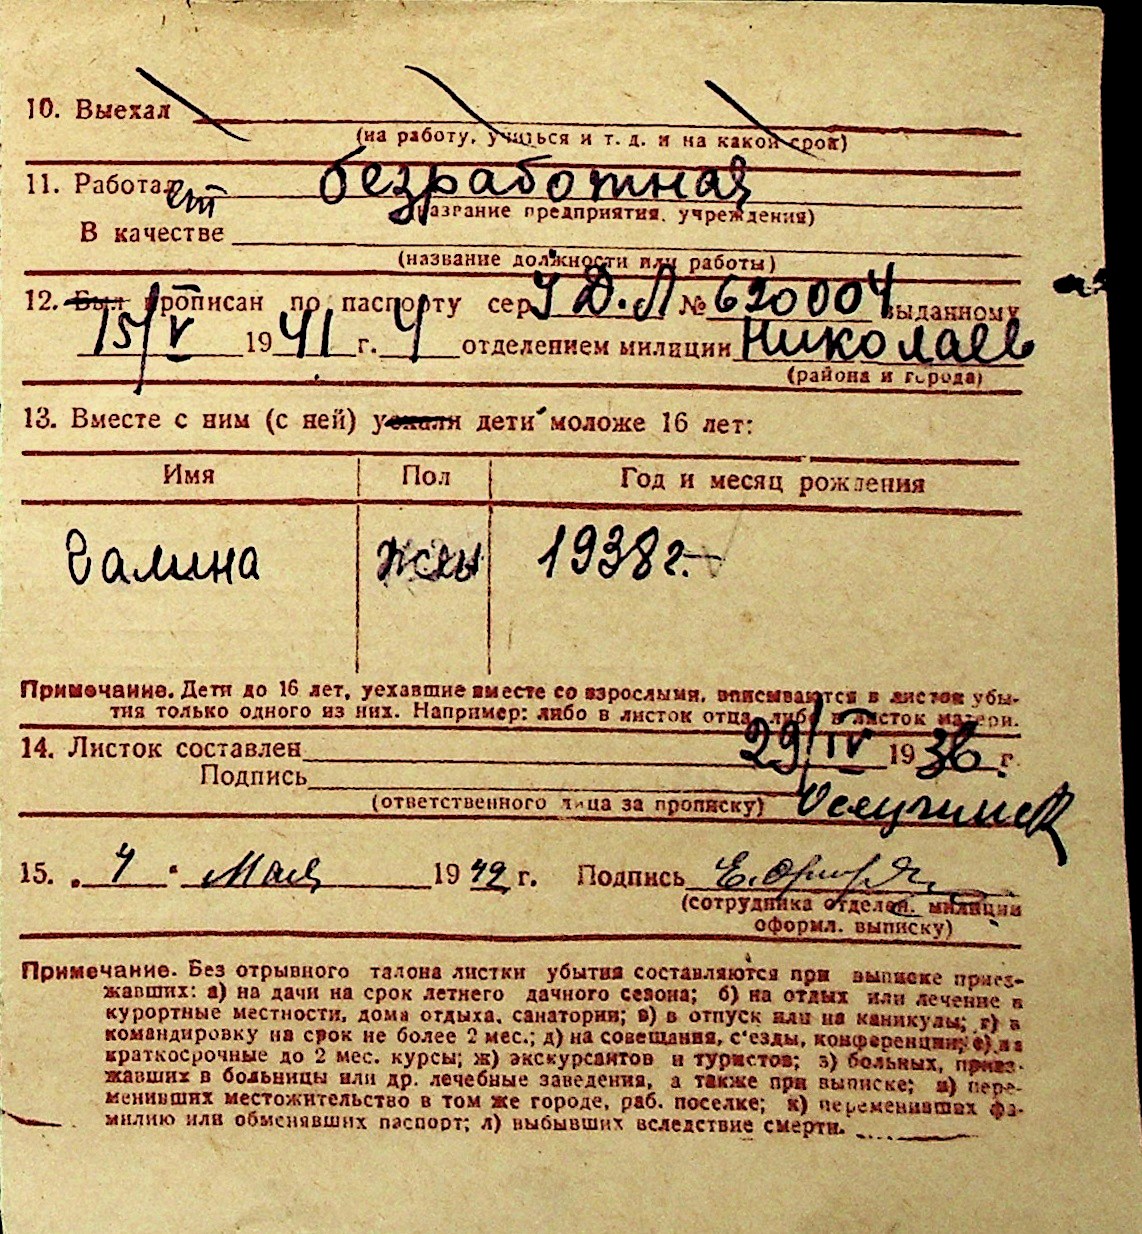 10. Выехал
(на работу, учиться и т. д. и на какой срок)
11. Работает безработная
(название предприятия, учреждения)
В качестве
(название должности или работы)
12. Был прописан по паспорту сер УД.Л № 620004 выданному
15/V 1941 г. 4 отделением милиции Николаев
(района и города)
13. Вместе с ним (с ней) уехали дети моложе 16 лет:
Имя Пол Год и месяц рождения
Галина жен 1938 г.
Примечание. Дети до 16 лет, уехавшие вместе со взрослыми, вписываются в листок убы-
тия только одного из них. Например: либо в листок отца, либо в листок матери.
14. Листок составлен 29/IV 1936 г.
Подпись
(ответственного лица за прописку)
15. „4“ Мая 1942 г. Подпись
(сотрудника отделен. милиции
оформл. выписку)
Примечание. Без отрывного талона листки убытия составляются при выписке приез-
жавших: а) на дачи на срок летнего дачного сезона; б) на отдых или лечение в
курортные местности, дома отдыха, санатории; в) в отпуск или на каникулы; г) в
командировку на срок не более 2 мес.; д) на совещания, с'езды, конференции; е) на
краткосрочные до 2 мес. курсы; ж) экскурсантов и туристов; з) больных, приез-
жавших в больницы или др. лечебные заведения, а также при выписке; и) пере-
менивших местожительство в том же городе, раб. поселке; к) переменивших фа-
милию или обменявших паспорт; л) выбывших вследствие смерти.